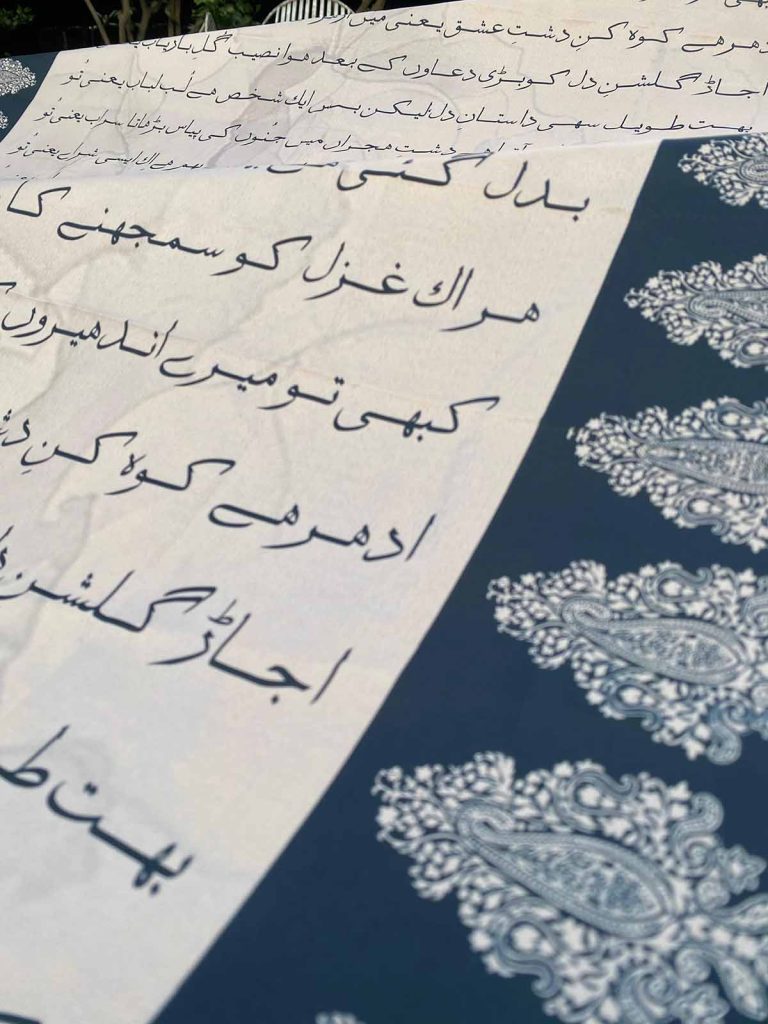 ادھر ہے کوہ کنِ دشتِ عشق یعنی میں
اجاڑ گلشنِ دل کو بڑی دعاوں کے بعد ہوا نصیب گلِ باریاب
بہت طویل سہی داستانِ دل لیکن بس ایک شخص ہے لُبِ لباب یعنی تُو
دشتِ ہجراں میں جُنوں کی پیاس بڑھاتا سراب یعنی تُو
ہے اک ایسی شراب یعنی تُو
بدل گئی
ہر اک غزل کو سمجھنے کا
کبھی تو میرے اندھیروں
ادھر ہے کوہ کنِ
اجاڑ گلشنِ
بہت